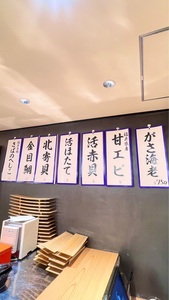 がさ海老
¥750
甘エビ
活赤貝
活ほたて
北寄貝
金目鯛
さばのへしこ